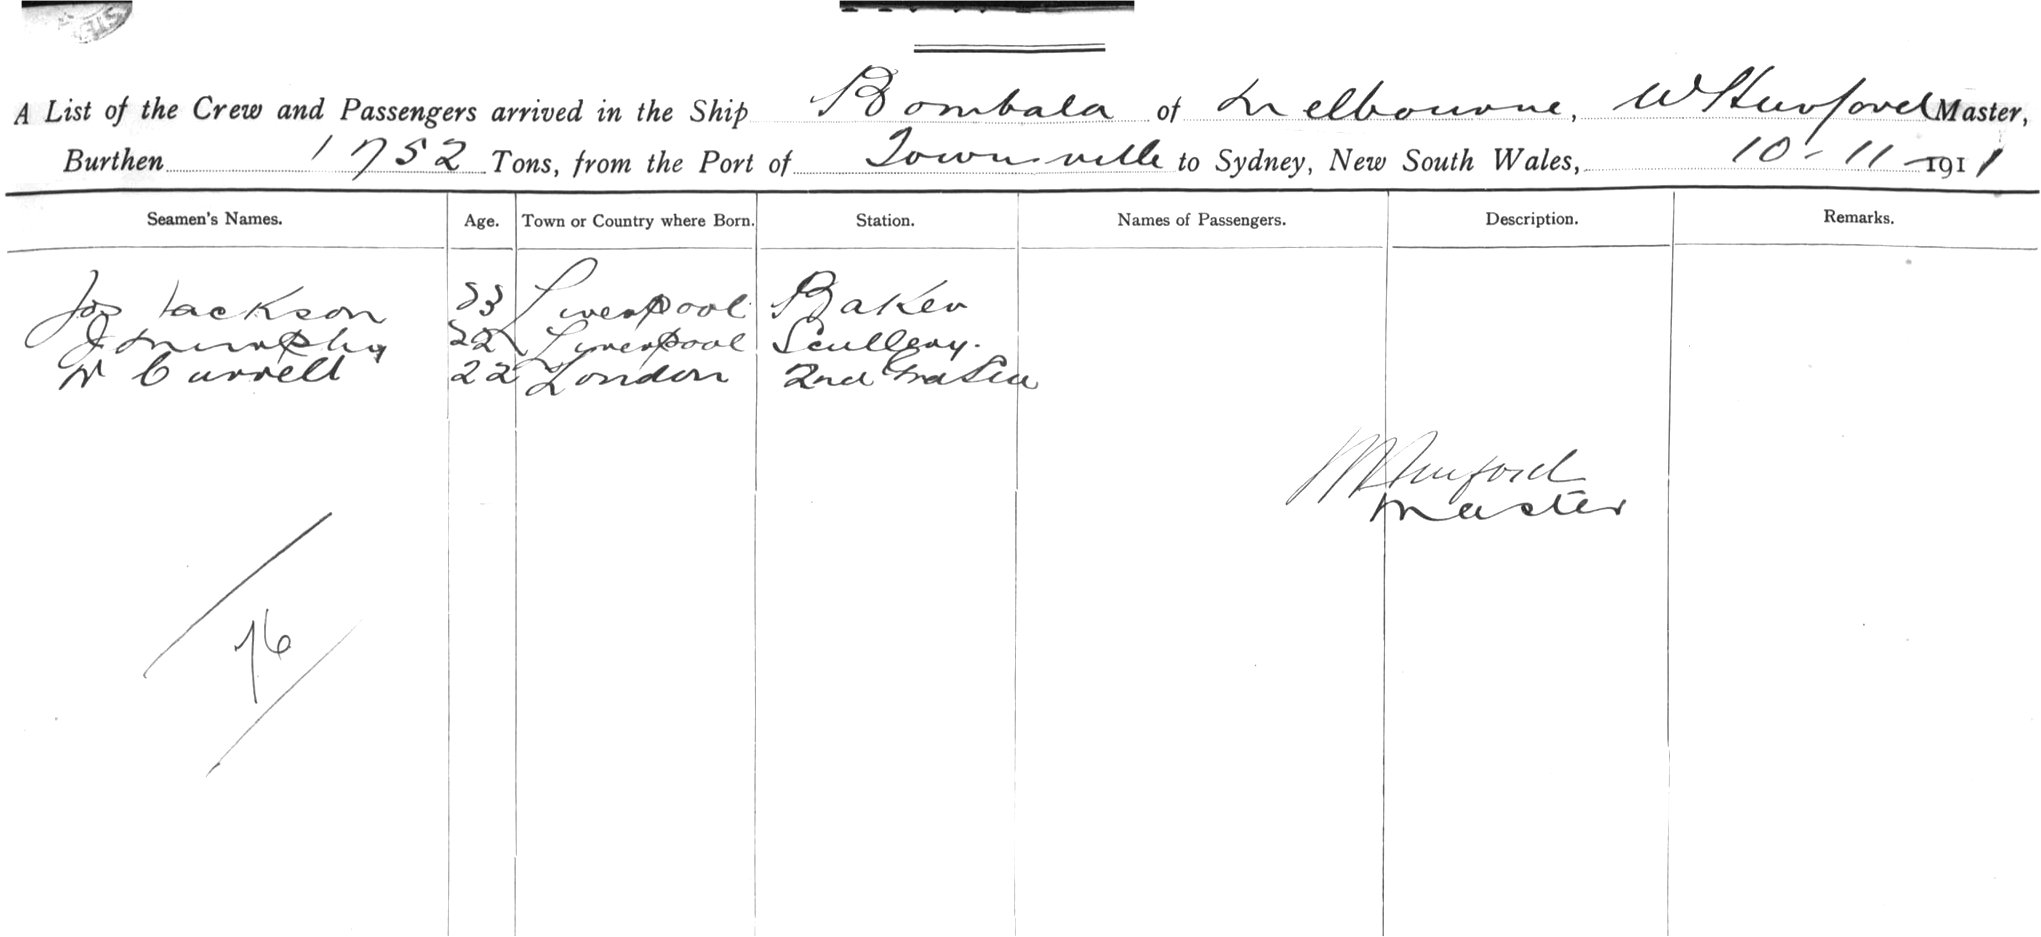 A List of the Crew and Passengers arrived in the Ship Bombala of Melbourne, W Hurford Master,
Burthen 1752 Tons, from the Port of Townsville to Sydney, New South Wales, 10-11-1911
Seamen's Names. Age. Town or Country where Born. Station. Names of Passengers. Description. Remarks.
Jos Jackson 33 Liverpool Baker
J Murphy 22 Liverpool Scullery.
W Currell 22 London 2nd
W Hurford
Master
76